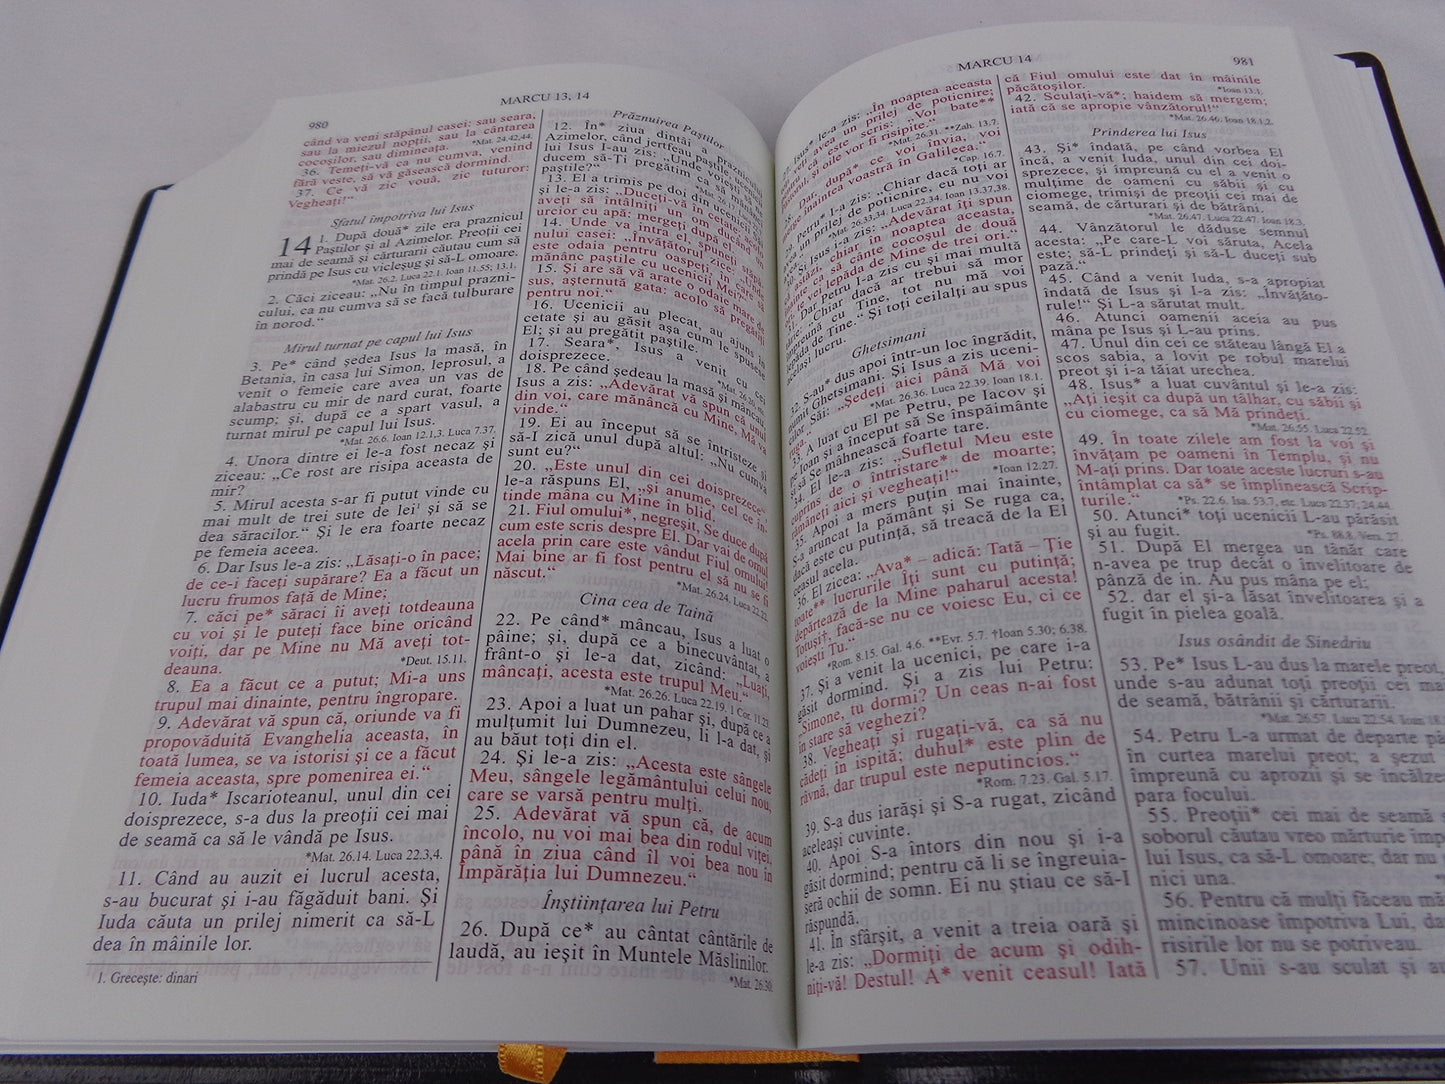 980
MARCU 13, 14
când va veni stăpânul casei: sau seara,
sau la miezul nopții, sau la cântarea
cocoșilor, sau dimineața. *Mat. 24.42,44.
36. Temeți-vă ca nu cumva, venind
fără veste, să vă găsească dormind.
37. Ce vă zic vouă, zic tuturor:
Vegheați!“
Sfatul împotriva lui Isus
14 1. După două* zile era praznicul
Paștilor și al Azimelor. Preoții cei
mai de seamă și cărturarii căutau cum să
prindă pe Isus cu vicleșug și să-L omoare.
*Mat. 26.2. Luca 22.1. Ioan 11.55; 13.1.
2. Căci ziceau: „Nu în timpul prazni-
cului, ca nu cumva să se facă tulburare
în norod.“
Mirul turnat pe capul lui Isus
3. Pe* când ședea Isus la masă, în
Betania, în casa lui Simon, leprosul, a
venit o femeie care avea un vas de
alabastru cu mir de nard curat, foarte
scump; și, după ce a spart vasul, a
turnat mirul pe capul lui Isus.
*Mat. 26.6. Ioan 12.1,3. Luca 7.37.
4. Unora dintre ei le-a fost necaz și
ziceau: „Ce rost are risipa aceasta de
mir?
5. Mirul acesta s-ar fi putut vinde cu
mai mult de trei sute de lei¹ și să se
dea săracilor.“ Și le era foarte necaz
pe femeia aceea.
6. Dar Isus le-a zis: „Lăsați-o în pace;
de ce-i faceți supărare? Ea a făcut un
lucru frumos față de Mine;
7. căci pe* săraci îi aveți totdeauna
cu voi și le puteți face bine oricând
voiți, dar pe Mine nu Mă aveți tot-
deauna. *Deut. 15.11.
8. Ea a făcut ce a putut; Mi-a uns
trupul mai dinainte, pentru îngropare.
9. Adevărat vă spun că, oriunde va fi
propovăduită Evanghelia aceasta, în
toată lumea, se va istorisi și ce a făcut
femeia aceasta, spre pomenirea ei.“
10. Iuda* Iscarioteanul, unul din cei
doisprezece, s-a dus la preoții cei mai
de seamă ca să le vândă pe Isus.
*Mat. 26.14. Luca 22.3,4.
11. Când au auzit ei lucrul acesta,
s-au bucurat și i-au făgăduit bani. Și
Iuda căuta un prilej nimerit ca să-L
dea în mâinile lor.
1. Grecește: dinari
Prăznuirea Paștilor
12. În* ziua dintâi a praznicului
Azimelor, când jertfeau paștile, ucenicii
lui Isus I-au zis: „Unde voiești să ne
ducem să-Ți pregătim ca să mănânci
paștile?“
13. El a trimis pe doi din ucenicii Săi
și le-a zis: „Duceți-vă în cetate; acolo
aveți să întâlniți un om ducând un
urcior cu apă: mergeți după el.
14. Unde va intra el, spuneți stăpâ-
nului casei: „Învățătorul zice: „Unde
este odaia pentru oaspeți, în care să
mănânc paștile cu ucenicii Mei?“
15. Și are să vă arate o odaie mare de
sus, așternută gata: acolo să pregătiți
pentru noi.“
16. Ucenicii au plecat, au ajuns în
cetate și au găsit așa cum le spusese
El; și au pregătit paștile.
17. Seara*, Isus a venit cu cei
doisprezece.
18. Pe când ședeau la masă și mâncau,
Isus a zis: „Adevărat vă spun că unul
din voi, care mănâncă cu Mine, Mă va
vinde.“
19. Ei au început să se întristeze și
să-I zică unul după altul: „Nu cumva
sunt eu?“
20. „Este unul din cei doisprezece“,
le-a răspuns El, „și anume, cel ce în-
tinde mâna cu Mine în blid.
21. Fiul omului*, negreșit, Se duce după
cum este scris despre El. Dar vai de omul
acela prin care este vândut Fiul omului!
Mai bine ar fi fost pentru el să nu se fi
născut.“
*Mat. 26.24. Luca 22.22.
Cina cea de Taină
22. Pe când* mâncau, Isus a luat o
pâine; și, după ce a binecuvântat, a
frânt-o și le-a dat, zicând: „Luați,
mâncați, acesta este trupul Meu.“
*Mat. 26.26. Luca 22.19. 1 Cor. 11.23.
23. Apoi a luat un pahar și, după ce a
mulțumit lui Dumnezeu, li l-a dat, și
au băut toți din el.
24. Și le-a zis: „Acesta este sângele
Meu, sângele legământului celui nou,
care se varsă pentru mulți.
25. Adevărat vă spun că, de acum
încolo, nu voi mai bea din rodul viței,
până în ziua când îl voi bea nou în
Împărăția lui Dumnezeu.“
Înștiințarea lui Petru
26. După ce* au cântat cântările de
laudă, au ieșit în Muntele Măslinilor.
*Mat. 26.30.
MARCU 14
981
Isus* le-a zis: „În noaptea aceasta
veți avea un prilej de poticnire;
este scris: „Voi bate**
și oile vor fi risipite.“
*Mat. 26.31. **Zah. 13.7.
Dar, după* ce voi învia, voi
înaintea voastră în Galileea.“
*Cap. 16.7.
Petru* I-a zis: „Chiar dacă toți ar
un prilej de poticnire, eu nu voi
*Mat. 26.33,34. Luca 22.34. Ioan 13.37,38.
Și Isus i-a zis: „Adevărat îți spun
astăzi, chiar în noaptea aceasta,
ca să cânte cocoșul de două
te vei lepăda de Mine de trei ori.“
Petru I-a zis cu și mai multă
„Chiar dacă ar trebui să mor
împreună cu Tine, tot nu mă voi
lepăda de Tine.“ Și toți ceilalți au spus
același lucru.
Ghetsimani
32. S-au* dus apoi într-un loc îngrădit,
numit Ghetsimani. Și Isus a zis uceni-
cilor Săi: „Ședeți aici până Mă voi
ruga. *Mat. 26.36. Luca 22.39. Ioan 18.1.
33. A luat cu El pe Petru, pe Iacov și
pe Ioan și a început să Se înspăimânte
și să Se mâhnească foarte tare.
34. El le-a zis: „Sufletul Meu este
cuprins de o întristare* de moarte;
rămâneți aici și vegheați!“ *Ioan 12.27.
35. Apoi a mers puțin mai înainte,
S-a aruncat la pământ și Se ruga ca,
dacă este cu putință, să treacă de la El
ceasul acela.
36. El zicea: „Ava* – adică: Tată – Ție
toate** lucrurile Îți sunt cu putință;
depărtează de la Mine paharul acesta!
Totuși†, facă-se nu ce voiesc Eu, ci ce
voiești Tu.“
*Rom. 8.15. Gal. 4.6. **Evr. 5.7. †Ioan 5.30; 6.38.
37. Și a venit la ucenici, pe care i-a
găsit dormind. Și a zis lui Petru:
„Simone, tu dormi? Un ceas n-ai fost
în stare să veghezi?
38. Vegheați și rugați-vă, ca să nu
cădeți în ispită; duhul* este plin de
râvnă, dar trupul este neputincios.“
*Rom. 7.23. Gal. 5.17.
39. S-a dus iarăși și S-a rugat, zicând
aceleași cuvinte.
40. Apoi S-a întors din nou și i-a
găsit dormind; pentru că li se îngreuia-
seră ochii de somn. Ei nu știau ce să-I
răspundă.
41. În sfârșit, a venit a treia oară și
le-a zis: „Dormiți de acum și odih-
niți-vă! Destul! A* venit ceasul! Iată
că Fiul omului este dat în mâinile
păcătoșilor. *Ioan 13.1.
42. Sculați-vă*; haidem să mergem;
iată că se apropie vânzătorul!“
*Mat. 26.46. Ioan 18.1,2.
Prinderea lui Isus
43. Și* îndată, pe când vorbea El
încă, a venit Iuda, unul din cei doi-
sprezece, și împreună cu el a venit o
mulțime de oameni cu săbii și cu
ciomege, trimiși de preoții cei mai de
seamă, de cărturari și de bătrâni.
*Mat. 26.47. Luca 22.47. Ioan 18.3.
44. Vânzătorul le dăduse semnul
acesta: „Pe care-L voi săruta, Acela
este; să-L prindeți și să-L duceți sub
pază.“
45. Când a venit Iuda, s-a apropiat
îndată de Isus și I-a zis: „Învăță-to-
rule!“ Și L-a sărutat mult.
46. Atunci oamenii aceia au pus
mâna pe Isus și L-au prins.
47. Unul din cei ce stăteau lângă El a
scos sabia, a lovit pe robul marelui
preot și i-a tăiat urechea.
48. Isus* a luat cuvântul și le-a zis:
„Ați ieșit ca după un tâlhar, cu săbii și
cu ciomege, ca să Mă prindeți.
*Mat. 26.55. Luca 22.52.
49. În toate zilele am fost la voi și
învățam pe oameni în Templu, și nu
M-ați prins. Dar toate aceste lucruri s-au
întâmplat ca să* se împlinească Scrip-
turile.“ *Ps. 22.6. Isa. 53.7, etc. Luca 22.37; 24.44.
50. Atunci* toți ucenicii L-au părăsit
și au fugit. *Ps. 88.8. Vers. 27.
51. După El mergea un tânăr care
n-avea pe trup decât o învelitoare de
pânză de in. Au pus mâna pe el;
52. dar el și-a lăsat învelitoarea și a
fugit în pielea goală.
Isus osândit de Sinedriu
53. Pe* Isus L-au dus la marele preot,
unde s-au adunat toți preoții cei mai
de seamă, bătrânii și cărturarii.
*Mat. 26.57. Luca 22.54. Ioan 18.
54. Petru L-a urmat de departe pâ
în curtea marelui preot; a șezut
împreună cu aprozii și se încălze
para focului.
55. Preoții* cei mai de seamă
soborul căutau vreo mărturie împ
lui Isus, ca să-L omoare; dar nu
nici una.
56. Pentru că mulți făceau mă
mincinoase împotriva Lui, da
risirile lor nu se potriveau.
57. Unii s-au sculat și au